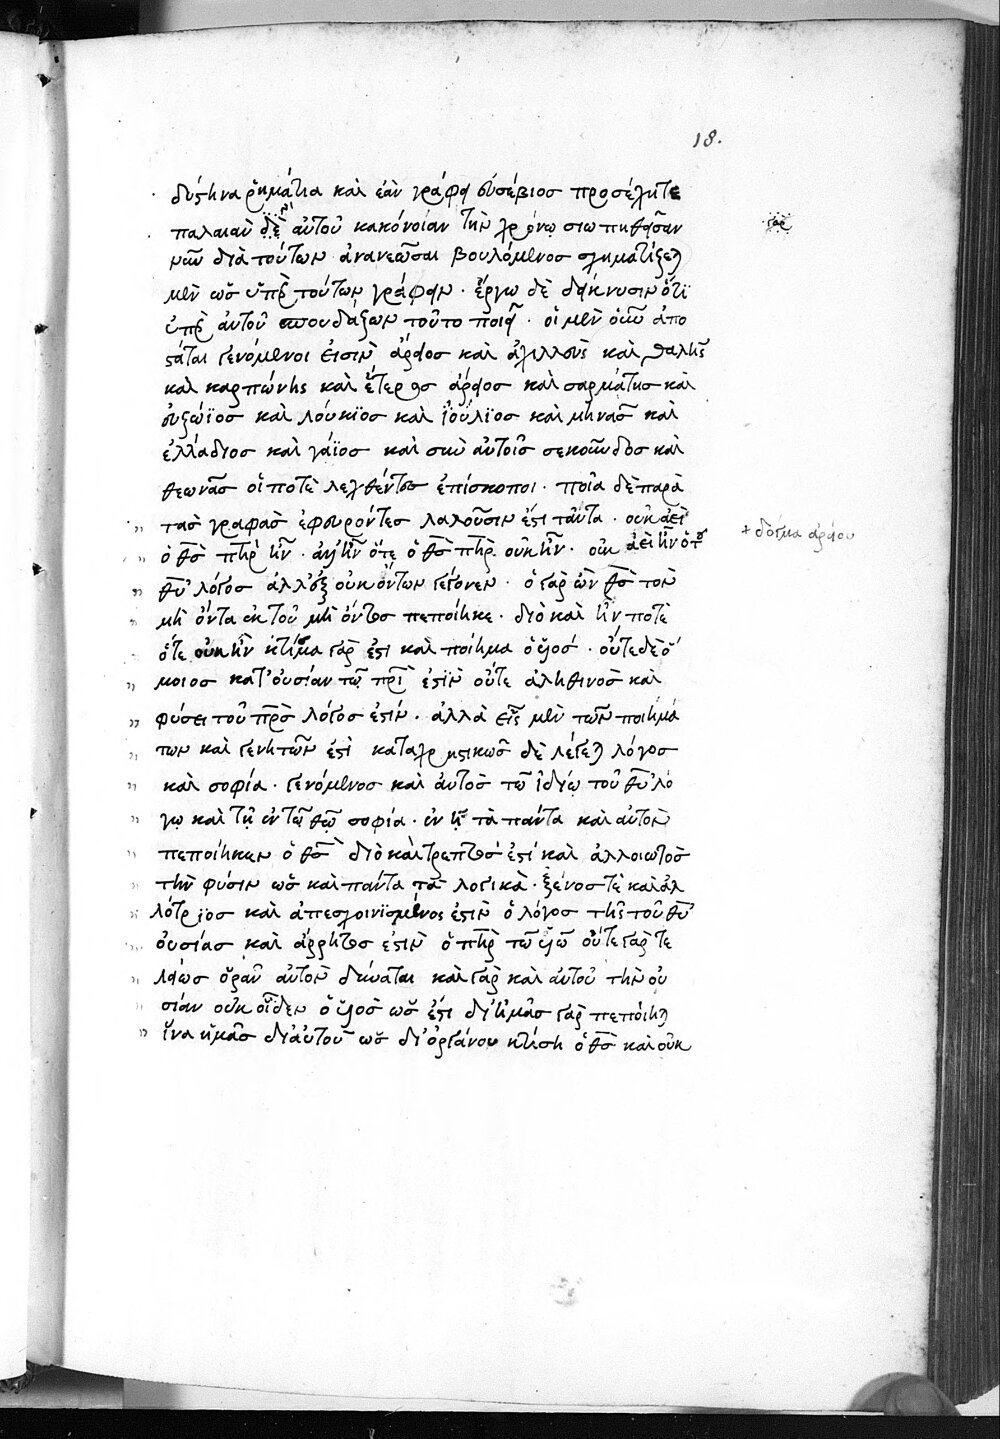 18.
δύστηνα ῥημάτια καὶ ἐὰν γράφη εὐσέβιος προσέχητε
παλαιὰν δὲ αὐτοῦ κακόνοίαν τὴν χρόνω σιωπηθεῖσαν
γὰρ
νῦν διὰ τούτων ἀνανεῶσαι βουλόμενος σχηματίζεται
μὲν ὡς ὑπὲρ τούτων γράφων · ἔργω δὲ δείκνυσιν ὅτι
ὑπὲρ αὐτοῦ σπουδάζων τοῦτο ποιεῖ · οἱ μὲν οὖν ἀπο
στάται γενόμενοι εἰσὶν ἄρειος καὶ ἀχιλλεὺς καὶ θαλῆς
καὶ καρπώνης καὶ ἕτερος ἄρειος καὶ σαρμάτης καὶ
εὐζώϊος καὶ λούκιος καὶ ἰούλιος καὶ μηνᾶς καὶ
ἑλλάδιος καὶ γάϊος καὶ σὺν αὐτοῖς σεκοῦνδος καὶ
θεωνᾶς οἵ ποτὲ λεχθέντες ἐπίσκοποι · ποῖα δὲ παρὰ
τὰς γραφὰς ἐφευρόντες λαλοῦσιν ἐστὶ ταῦτα · οὐκ ἀεὶ
+ δόγμα ἀρείου
ὁ θς πηρ ἦν · ἀλλ' ἦν ὅτε ὁ θς πηρ οὐκ ἦν · οὐκ ἀεὶ ἦν ὁ τοῦ
θυ λόγος ἀλλ' ἐξ οὐκ ὄντων γέγονεν · ὁ γὰρ ὢν θς τὸν
μὴ ὄντα ἐκ τοῦ μὴ ὄντος πεποίηκε · διὸ καὶ ἦν ποτὲ
ὅτε οὐκ ἦν κτίσμα γάρ ἐστι καὶ ποίημα ὁ υἱός · οὔτε δὲ ὅ
μοιος κατ' οὐσίαν τῶ πρι ἐστὶν οὔτε ἀληθινὸς καὶ
φύσει τοῦ πρς λόγος ἐστίν · ἀλλὰ εἷς μὲν τῶν ποιημά
των καὶ γενητῶν ἐστὶ καταχρηστικῶς δὲ λέγεται λόγος
καὶ σοφία · γενόμενος καὶ αὐτὸς τῶ ἰδίω τοῦ θυ λό
γω καὶ τῆ ἐν τῶ θω σοφία · ἐν ἧ τὰ πάντα καὶ αὐτὸν
πεποίηκεν ὁ θς διὸ καὶ τρεπτός ἐστί καὶ ἀλλοιωτὸς
τὴν φύσιν ὡς καὶ πάντα τὰ λογικὰ · ξένος τὲ καὶ ἀλ
λότριος καὶ ἀπεσχοινισμένος ἐστὶν ὁ λόγος τῆς τοῦ θυ
οὐσίας καὶ ἄρρητος ἐστὶν ὁ πηρ τῶ υἱῶ οὔτε γὰρ τε
λείως ὁρᾶν αὐτὸν δύναται καὶ γὰρ καὶ αὐτοῦ τὴν οὐ
σίαν οὐκ οἶδεν ὁ υἱὸς ὡς ἔστι δι' ἡμᾶς γὰρ πεποίηται
ἵνα ἡμᾶς δι' αὐτοῦ ὡς δι' ὀργάνου κτίση ὁ θς καὶ οὐκ